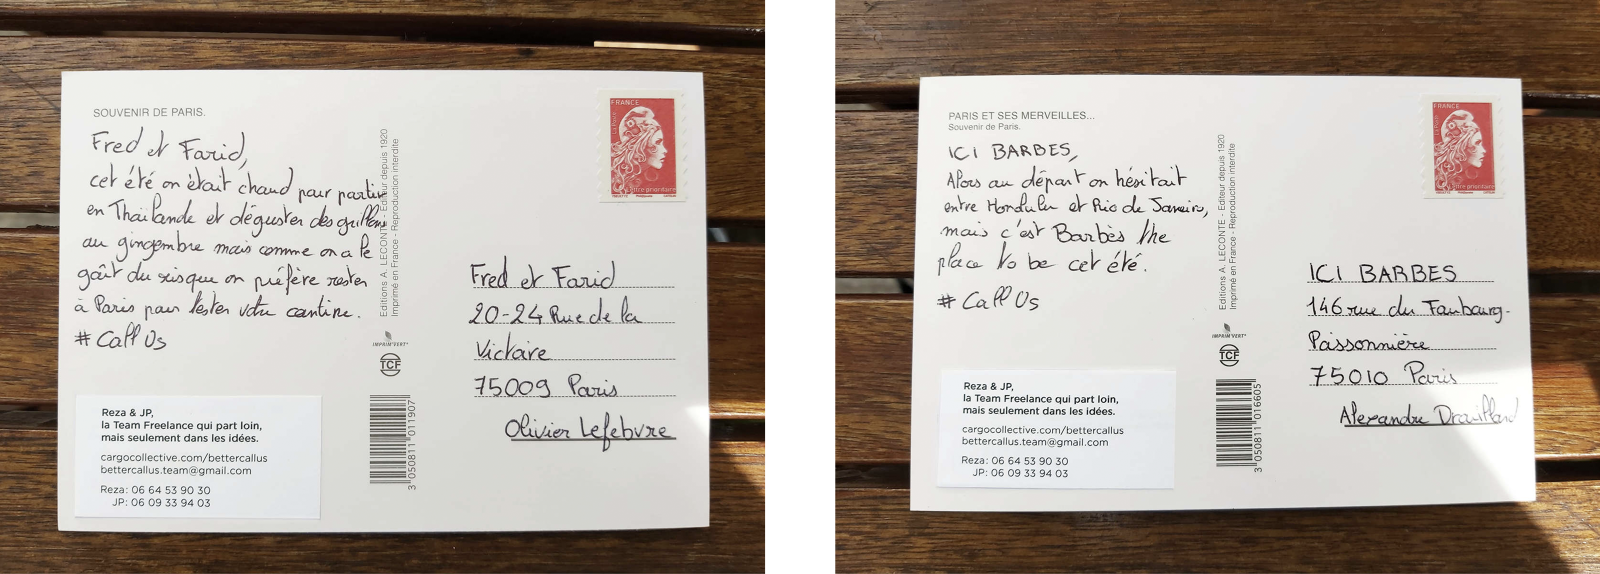 SOUVENIR DE PARIS.
Fred et Farid,
cet été on était chaud pour partir
en Thaïlande et déguster des grillons
au gingembre mais comme on a le
goût du risque on préfère rester
à Paris pour tester votre cantine.
# Call Us
Reza & JP,
la Team Freelance qui part loin,
mais seulement dans les idées.
cargocollective.com/bettercallus
bettercallus.team@gmail.com
Reza: 06 64 53 90 30
JP: 06 09 33 94 03
Editions A. LECONTE - Editeur depuis 1920
Imprimé en France - Reproduction interdite
IMPRIM'VERT®
TCF
3 050811 011907
FRANCE
La Poste
Lettre prioritaire
Fred et Farid
20-24 Rue de la
Victoire
75009 Paris
Olivier Lefebvre
PARIS ET SES MERVEILLES...
Souvenir de Paris.
ICI BARBES,
Alors au départ on hésitait
entre Honolulu et Rio de Janeiro,
mais c'est Barbès the
place to be cet été.
# Call Us
Reza & JP,
la Team Freelance qui part loin,
mais seulement dans les idées.
cargocollective.com/bettercallus
bettercallus.team@gmail.com
Reza: 06 64 53 90 30
JP: 06 09 33 94 03
Editions A. LECONTE - Editeur depuis 1920
Imprimé en France - Reproduction interdite
IMPRIM'VERT®
TCF
3 050811 016605
FRANCE
La Poste
Lettre prioritaire
ICI BARBES
146 rue du Faubourg-
Poissonnière
75010 Paris
Alexandre Drouillard